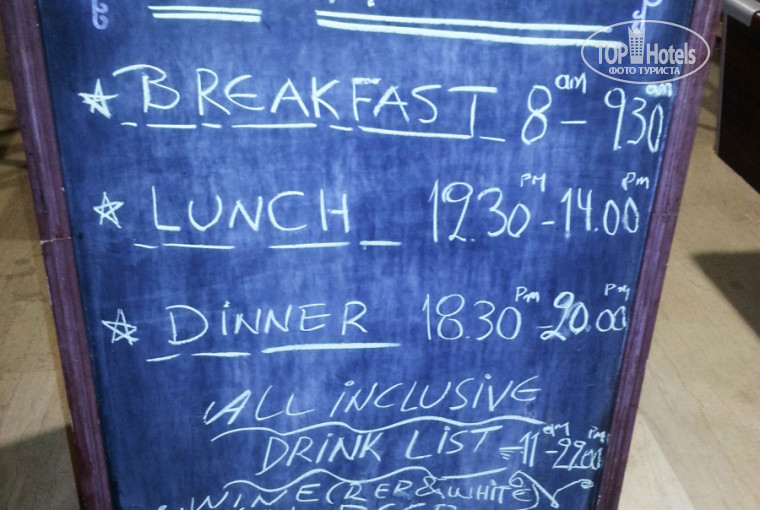 TOP Hotels
ФОТО ТУРИСТА
BREAKFAST 8 am - 930 am
LUNCH 12.30 PM - 14.00 PM
DINNER 18.30 PM - 20.00 PM
ALL INCLUSIVE
DRINK LIST = 11 am - 22.00 PM
WINE (RER & WHITE)